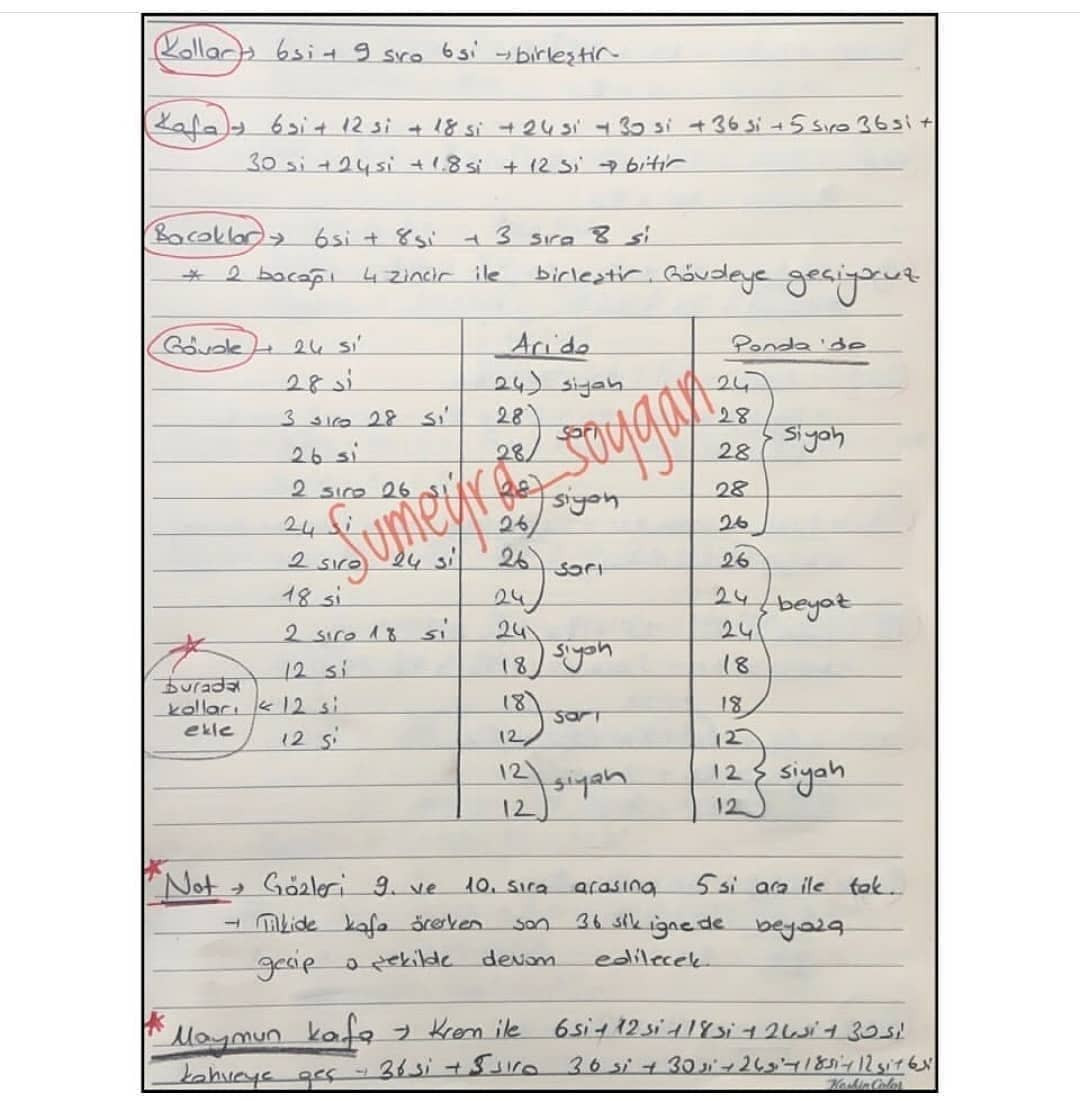 Kollar → 6si + 9 sıra 6si → birleştir
Kafa → 6si + 12 si + 18 si + 24 si + 30 si + 36 si + 5 sıra 36 si +
30 si + 24 si + 18 si + 12 si → bitir
Bacaklar → 6si + 8si + 3 sıra 8 si
* 2 bacağı 4 zincir ile birleştir. Gövdeye geçiyoruz
Gövde → 24 si
28 si
3 sıra 28 si
26 si
2 sıra 26 si
24 si
2 sıra 24 si
18 si
2 sıra 18 si
12 si
← 12 si
12 si
buradal
kolları
ekle
Arıda
24) siyah
28
28) sarı
28
26) siyah
26
24) sarı
24
18) siyah
18
12) sarı
12
12) siyah
Panda'da
24
28
28
28
26
} siyah
26
24
24
18
18
} beyaz
12
12
12
} siyah
Sumeyra_soygan
* Not → Gözleri 9. ve 10. sıra arasına 5 si ara ile tak.
→ Tilkide kafa örerken son 36 sık iğnede beyaza
geçip o şekilde devam edilecek.
* Maymun kafa → Krem ile 6si + 12si + 18si + 24si + 30si
kahveye geç → 36si + 5 sıra 36 si + 30si + 24si + 18si + 12si + 6si